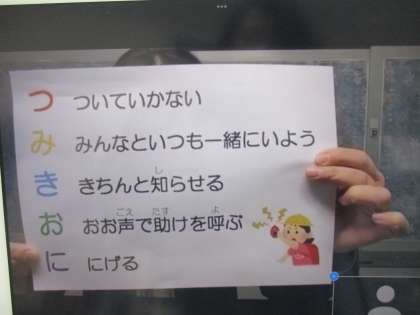 つ ついていかない
み みんなといつも一緒にいよう
き きちんと知らせる
お おお声で助けを呼ぶ
に にげる